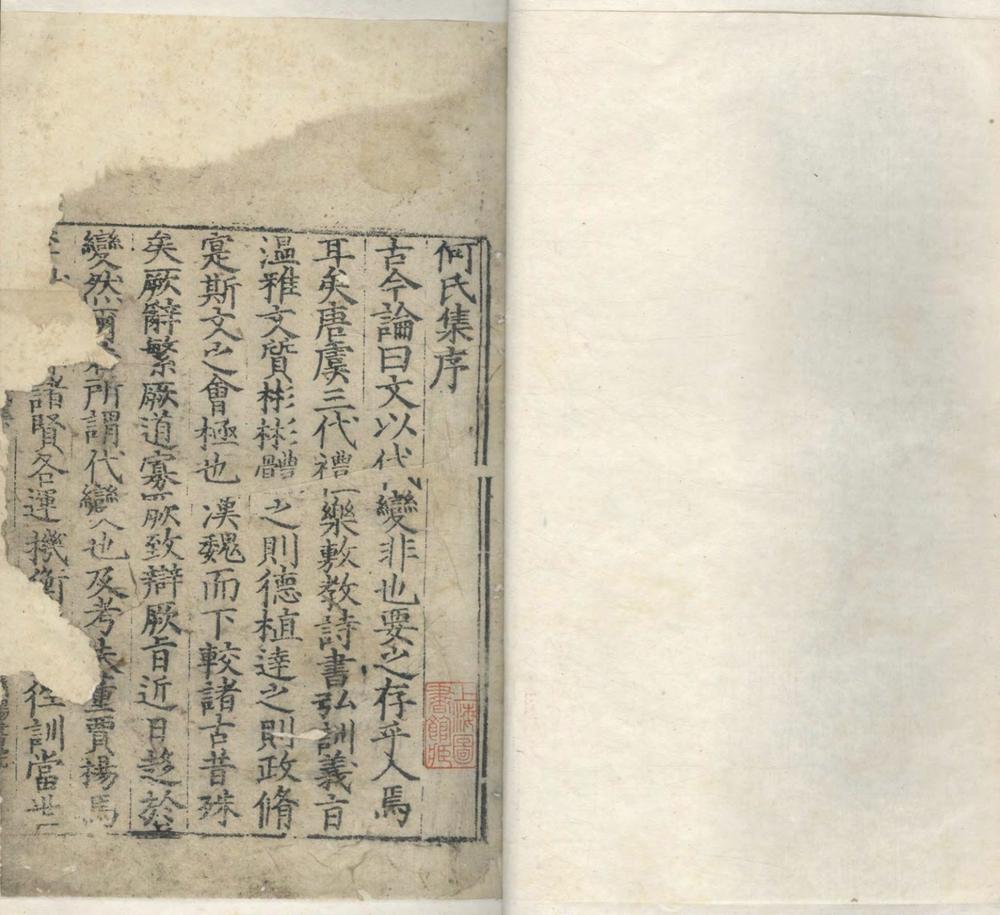 何氏集序
古今論曰文以代變非也要之存乎人焉
耳矣唐虞三代禮樂敷教詩書弘訓義言
溫雅文質彬彬體之則德植達之則政脩
寔斯文之會極也漢魏而下較諸古昔殊
矣厥辭繁厥道寡厥致辯厥旨近日趍於
變然爾所謂代變也及考董賈揚馬
諸賢各運機衡徃訓當世
上海圖書館藏